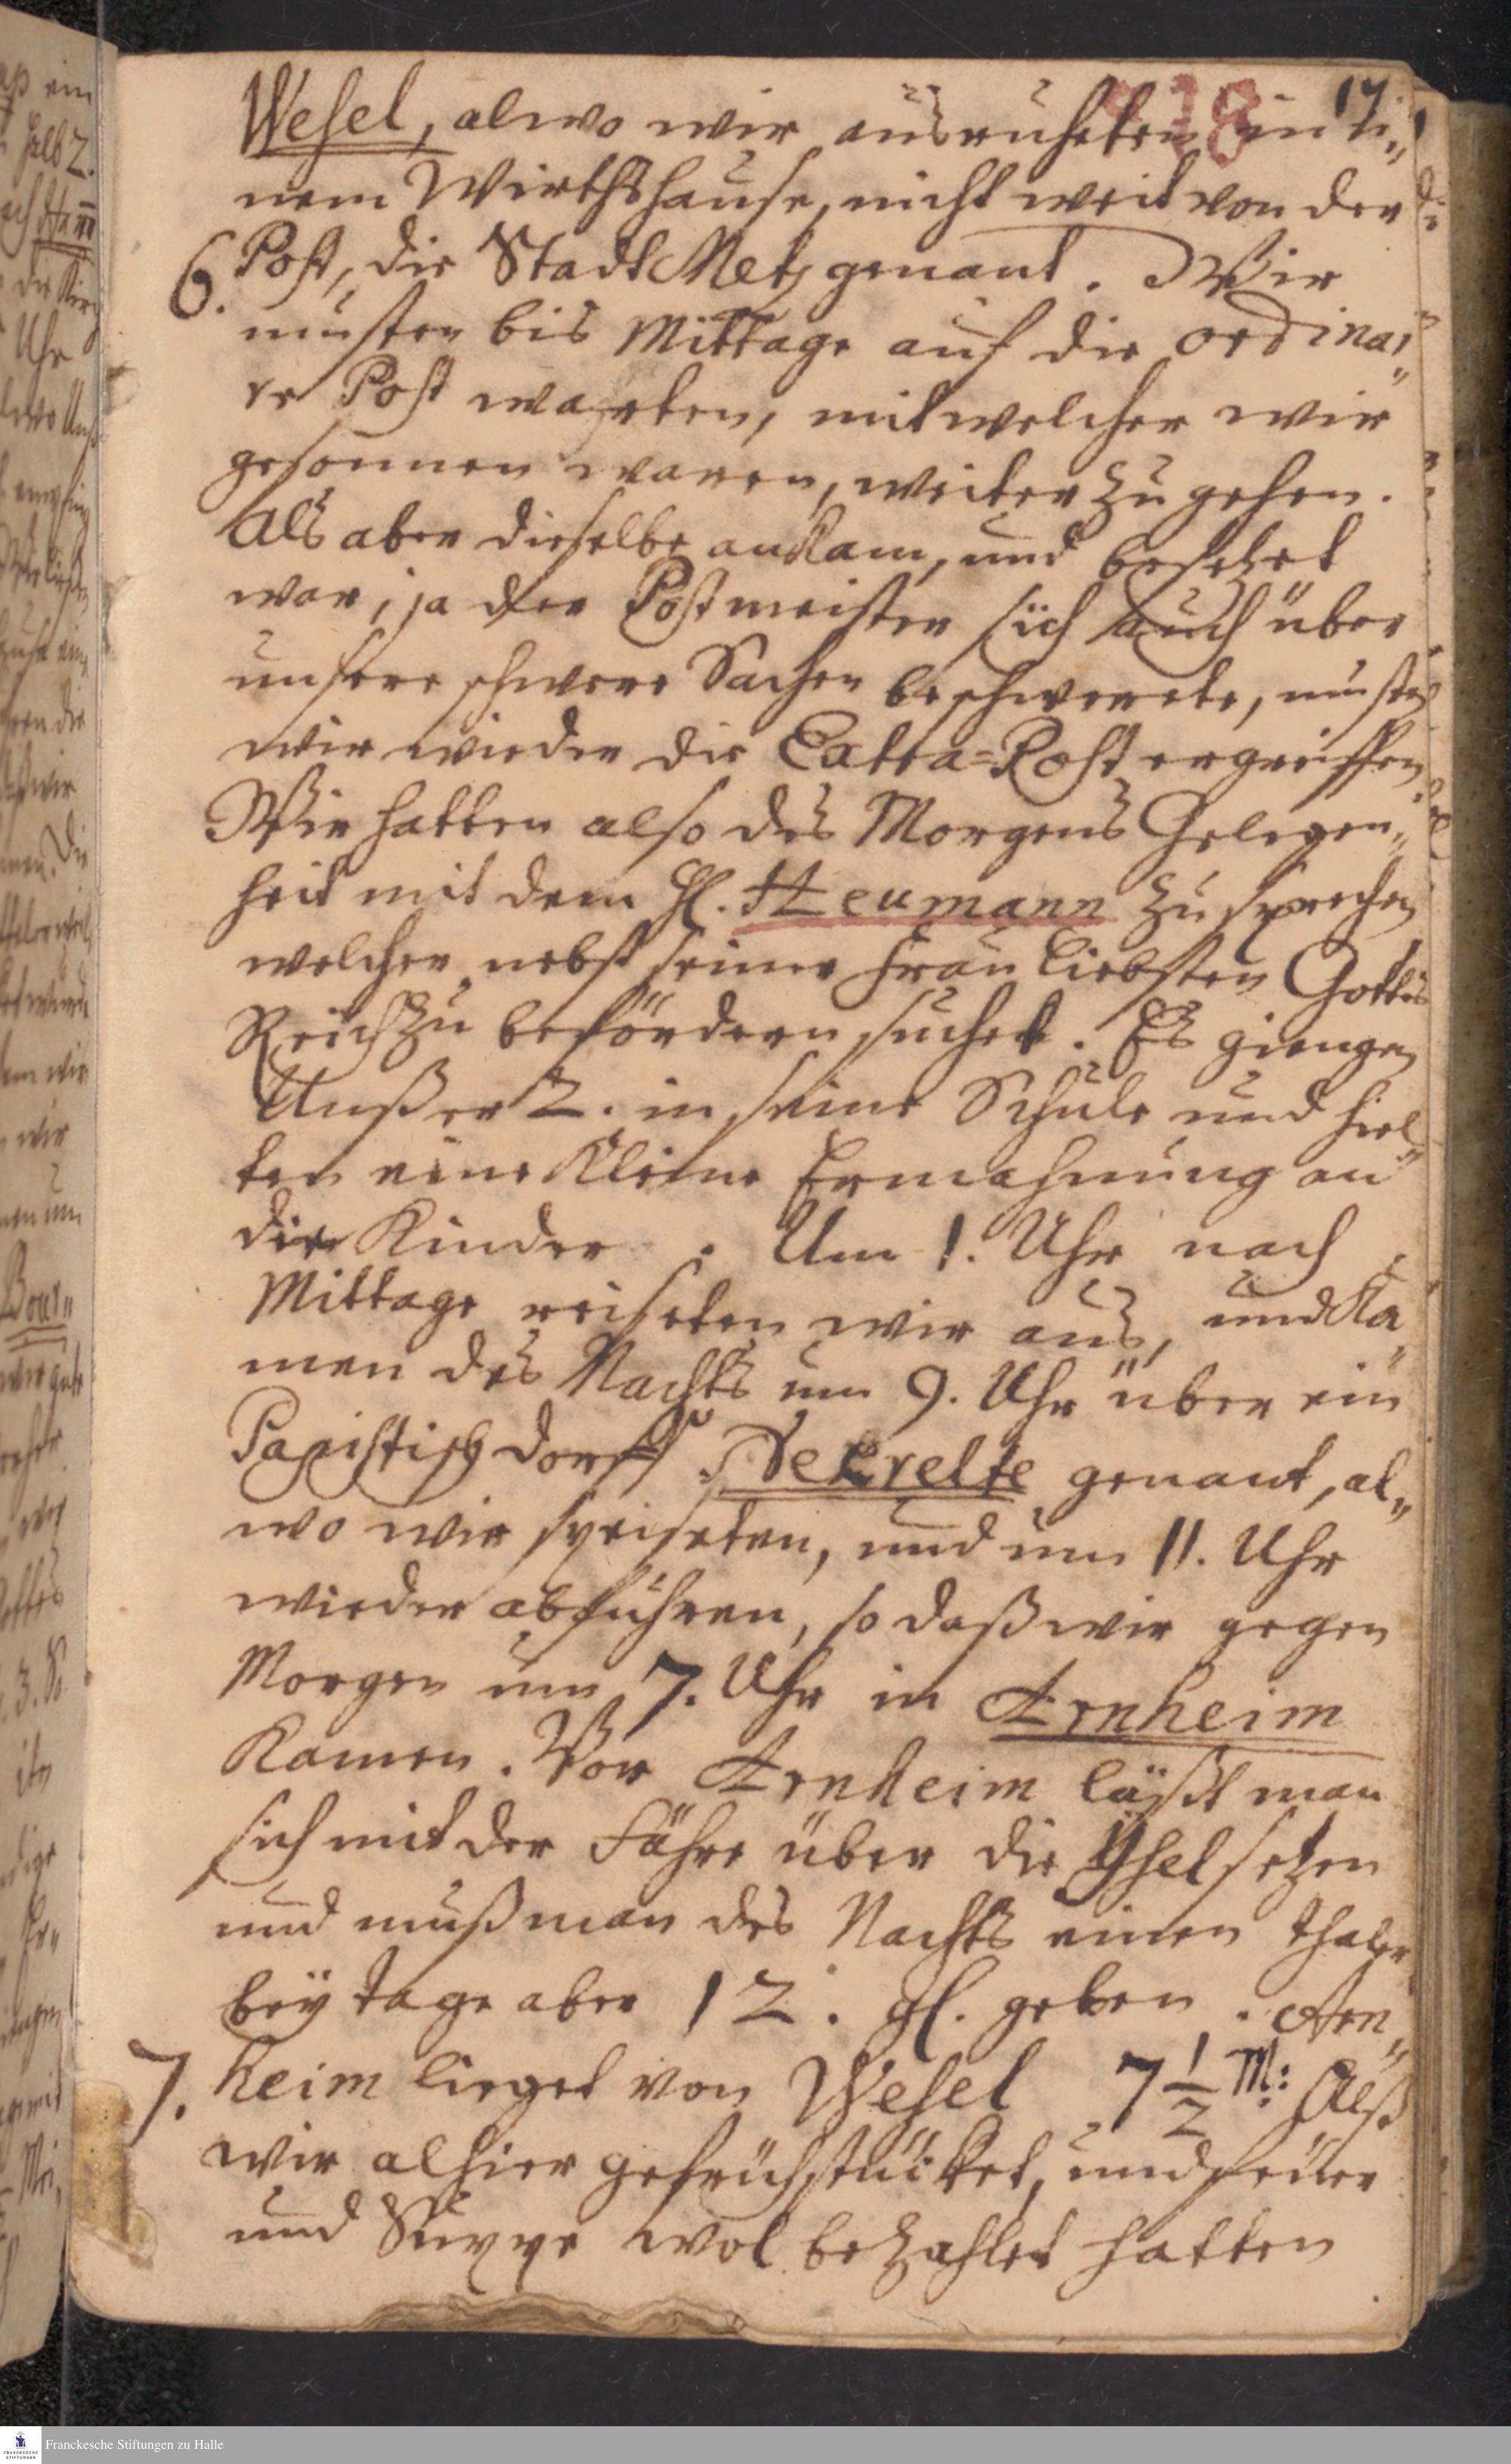 17.
Wesel, alwo wir ausruheten in ei„
nem Wirthshause, nicht weit von der
6. Post, die Stadt Metz genant. Wir
musten bis Mittage auf die ordinai„
re Post warten, mit welcher wir
gesonnen waren, weiter zu gehen.
Als aber dieselbe ankam, und besetzet
war, ja der Postmeister sich auch über
unsere schwere Sachen beschwerete, musten
wir wieder die Extra=Post ergreiffen.
Wir hatten also des Morgens Gelegen„
heit mit dem H. Heumann zu sprechen,
welcher nebst seiner Frau Liebsten Gottes
Reich zu befördern suchet. Es giengen
Unßer 2. in seine Schule und hiel„
ten eine Kleine Ermahnung an
die Kinder. Um 1. Uhr nach
Mittage reiseten wir aus, und Ka„
men des Nachts um 9. Uhr über ein
Papistisch Dorff genant, al„
wo wir speiseten, und um 11. Uhr
wieder abfuhren, so daß wir gegen
Morgen um 7. Uhr in Arnheim
Kamen. Vor Arnheim läßt man
sich mit der Fähre über die Yssel setzen
und muß man des Nachts einen Thaler
bey Tage aber 12. gl. geben. Arn„
7. heim lieget von Wesel 7 1/2 M: Alß
wir alhier gefrühstücket, und Feuer
und Suppe wol bezahlet hatten
Franckesche Stiftungen zu Halle